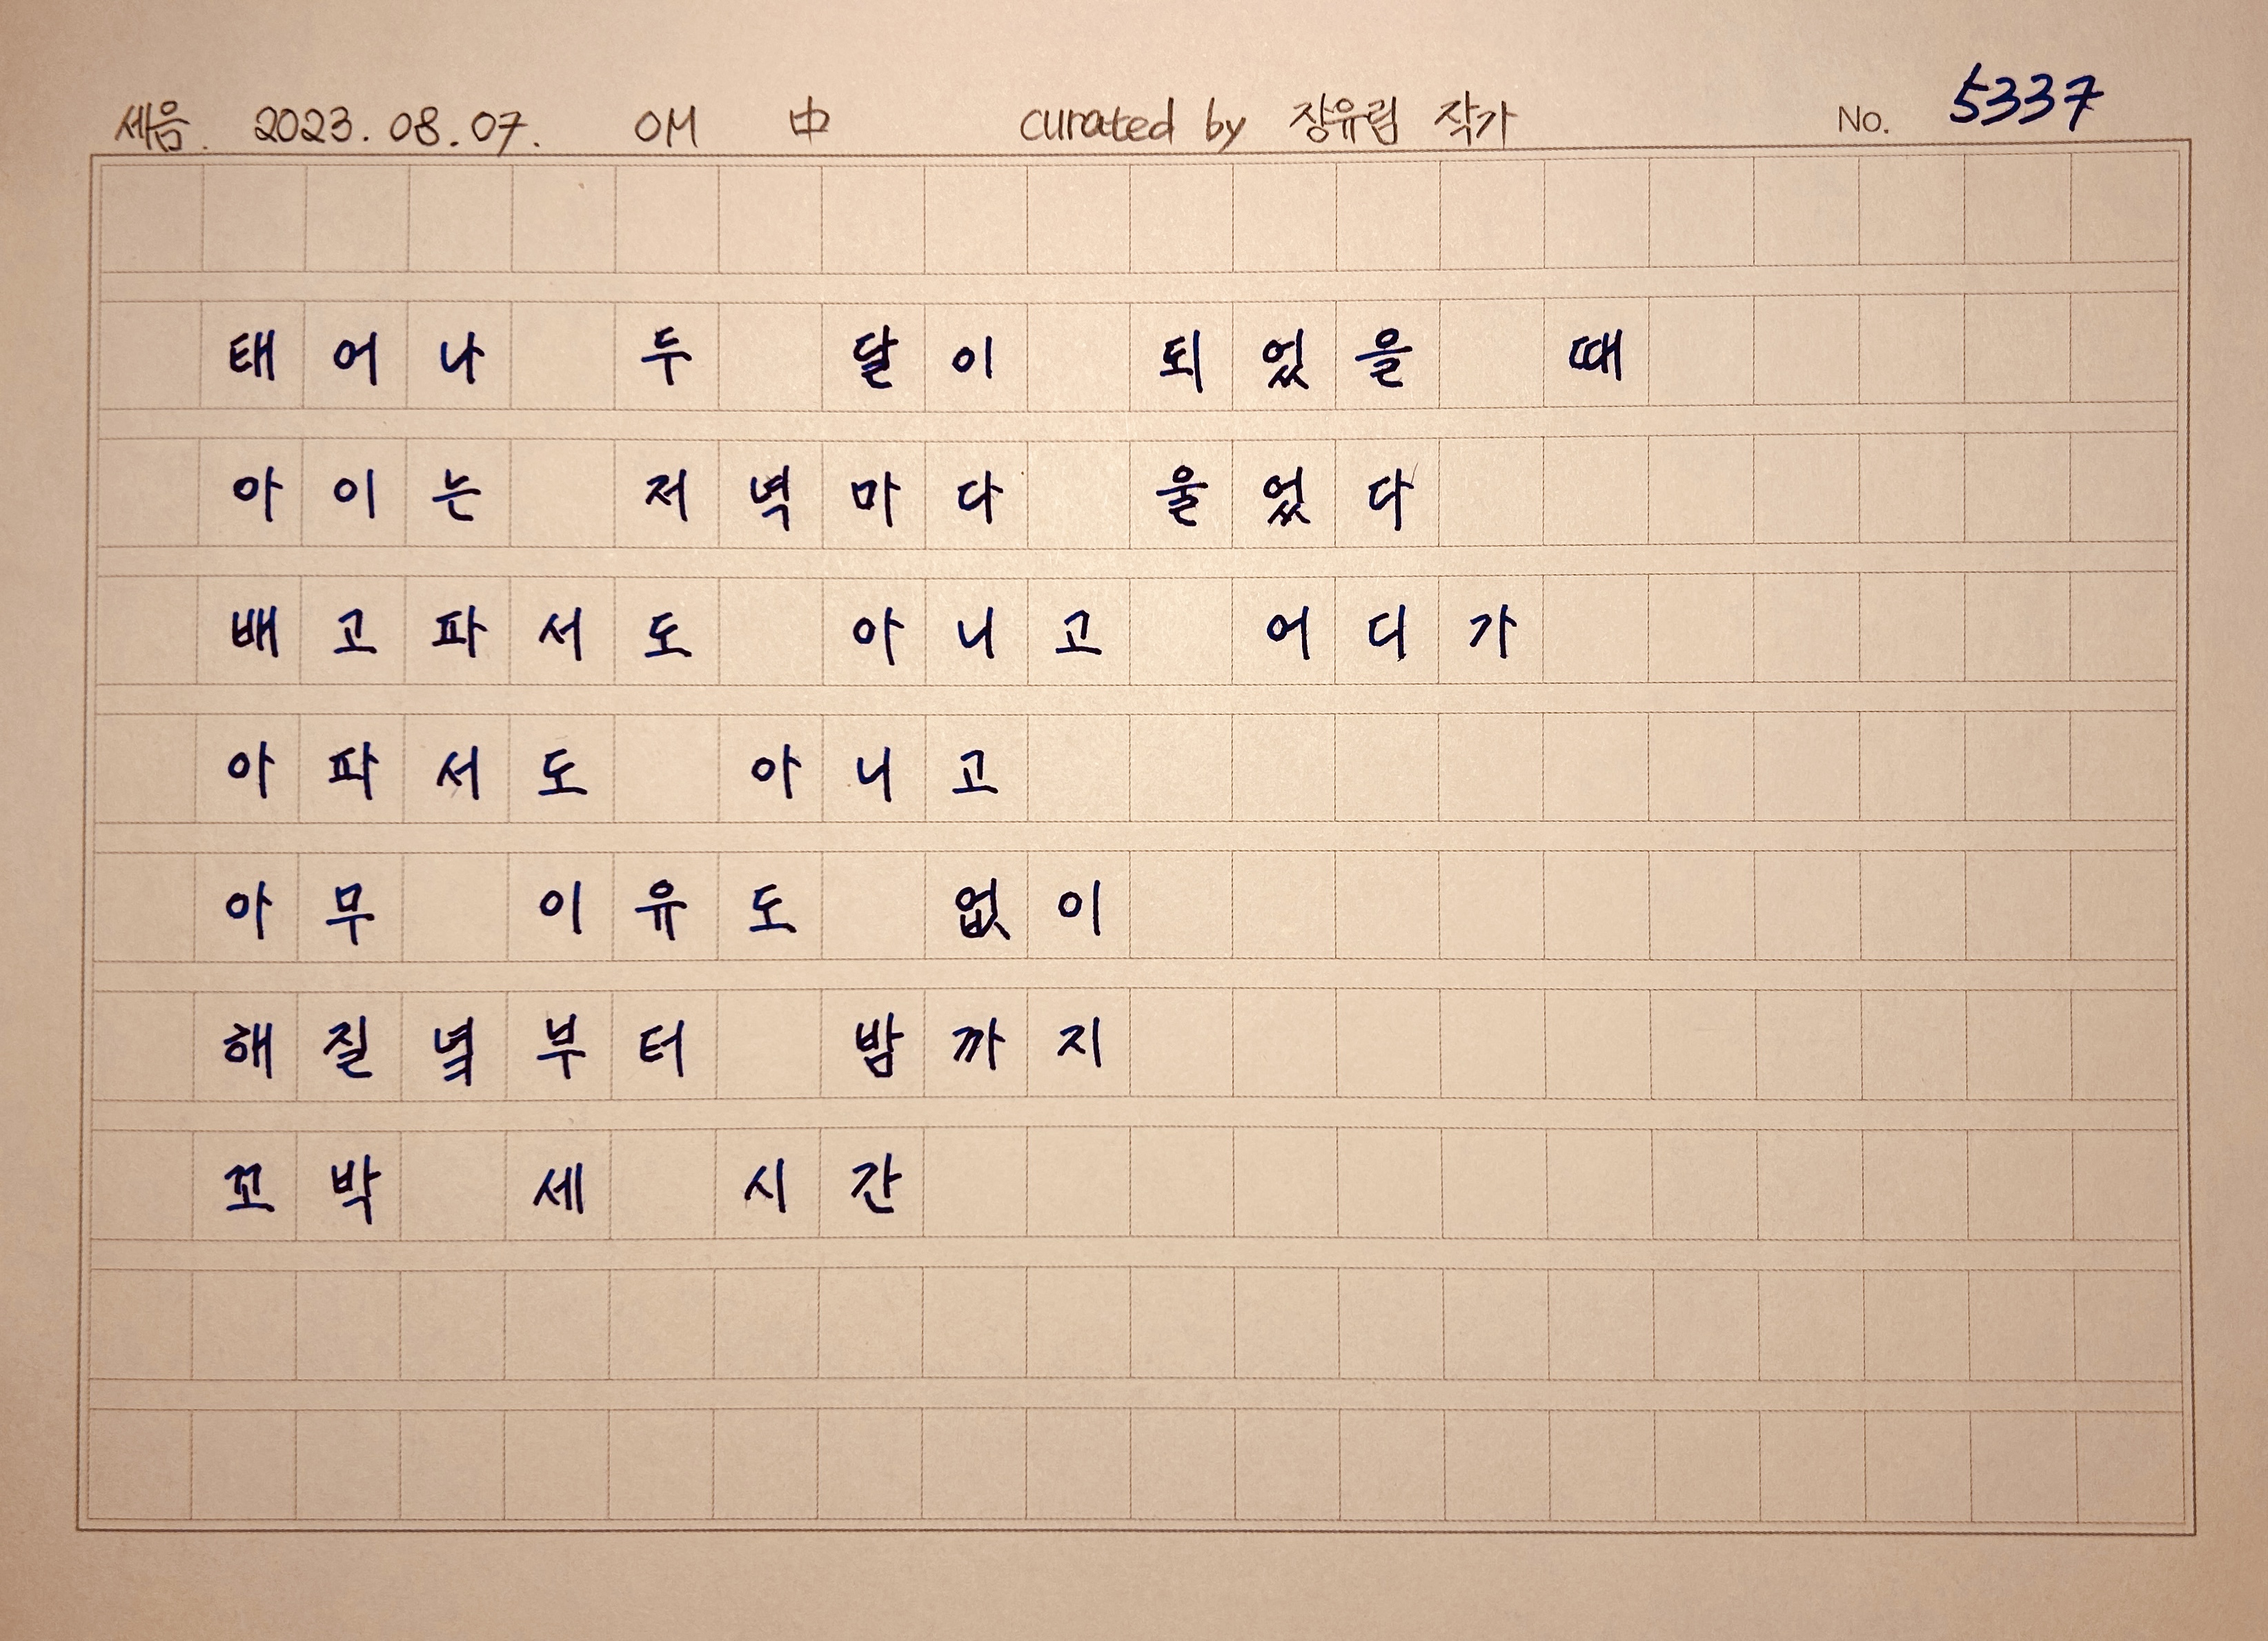 세음. 2023. 08. 07. OM 中 curated by 장유림 작가 No. 5337
태어나 두 달이 되었을 때
아이는 저녁마다 울었다
배고파서도 아니고 어디가
아파서도 아니고
아무 이유도 없이
해질녘부터 밤까지
꼬박 세 시간